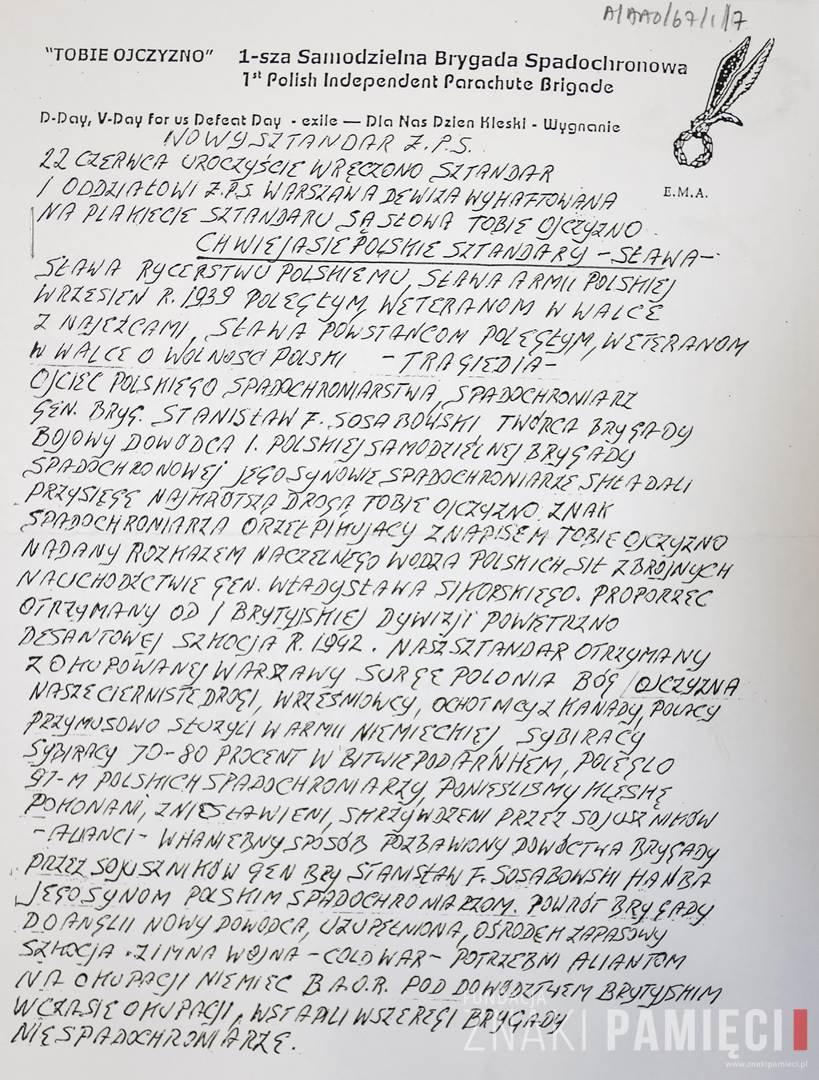 A/AAO/67/1/7
"TOBIE OJCZYZNO" 1-sza Samodzielna Brygada Spadochronowa
1st Polish Independent Parachute Brigade
D-Day, V-Day for us Defeat Day - exile — Dla Nas Dzien Kleski - Wygnanie
E.M.A.
NOWY SZTANDAR Z.P.S.
22 CZERWCA UROCZYŚCIE WRĘCZONO SZTANDAR
I ODDZIAŁOWI Z.P.S WARSZAWA DEWIZA WYHAFTOWANA
NA PLAKIECIE SZTANDARU SĄ SŁOWA TOBIE OJCZYZNO.
CHWIEJĄ SIE POLSKIE SZTANDARY - SŁAWA -
SŁAWA RYCERSTWU POLSKIEMU, SŁAWA ARMII POLSKIEJ
WRZESIEŃ R. 1939 POLEGŁYM, WETERANOM W WALCE
Z NAJEŹCAMI, SŁAWA POWSTAŃCOM POLEGŁYM, WETERANOM
W WALCE O WOLNOŚCI POLSKI - TRAGIEDIA -
OJCIEC POLSKIEGO SPADOCHRONIARSTWA, SPADOCHRONIARZ
GEN. BRYG. STANISŁAW F. SOSABOWSKI TWÓRCA BRYGADY
BOJOWY DOWÓDCA I. POLSKIEJ SAMODZIELNEJ BRYGADY
SPADOCHRONOWEJ JEGO SYNOWIE SPADOCHRONIARZE SKŁADALI
PRZYSIĘGĘ NAJKRÓTSZĄ DROGĄ TOBIE OJCZYZNO. ZNAK
SPADOCHRONIARZA ORZEŁ PIKUJĄCY Z NAPISEM TOBIE OJCZYZNO
NADANY ROZKAZEM NACZELNEGO WODZA POLSKICH SIŁ ZBROJNYCH
NA UCHODŹCTWIE GEN. WŁADYSŁAWA SIKORSKIEGO. PROPORZEC
OTRZYMANY OD I BRYTYJSKIEJ DYWIZJI POWIETRZNO
DESANTOWEJ SZKOCJA R. 1942. NASZ SZTANDAR OTRZYMANY
Z OKUPOWANEJ WARSZAWY SURGE POLONIA BÓG I OJCZYZNA
NASZE CIERNISTE DROGI, WRZEŚNIOWCY, OCHOTNICY Z KANADY, POLACY
PRZYMUSOWO SŁUŻYLI W ARMII NIEMIECKIEJ, SYBIRACY
SYBIRACY 70-80 PROCENT W BITWIE POD ARNHEM, POLEGLO
97-M POLSKICH SPADOCHRONIARZY, PONIEŚLISMY KLĘSKĘ
POKONANI, ZNIESŁAWIENI, SKRZYWDZENI PRZEZ SOJUSZNIKÓW
- ALIANCI - W HANIEBNY SPOSÓB POZBAWIONY DOWÓCTWA BRYGADY
PRZEZ SOJUSZNIKÓW GEN BRY STANISŁAW F. SOSABOWSKI HAŃBA
JEGO SYNOM POLSKIM SPADOCHRONIARZOM. POWRÓT BRYGADY
DO ANGLII NOWY DOWODCA, UZUPEŁNIONA, OŚRODEK ZAPASOWY
SZKOCJA. ZIMNA WOJNA - COLD WAR - POTRZEBNI ALIANTOM
NA OKUPACJI NIEMIEC B.A.O.R. POD DOWÓDZTWEM BRYTYJSKIM
W CZASIE OKUPACJI, WSTĄPILI W SZEREGI BRYGADY
NIE SPADOCHRONIARZE.
FUNDACJA
ZNAKI PAMIĘCI
www.znakipamieci.pl